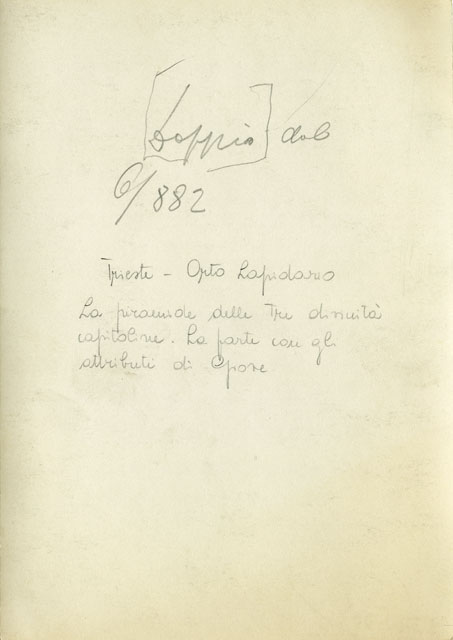 [Doppio] dal
G/882
Trieste - Orto Lapidario
La piramide delle tre divinità
capitoline. La parte con gli
attributi di Giove